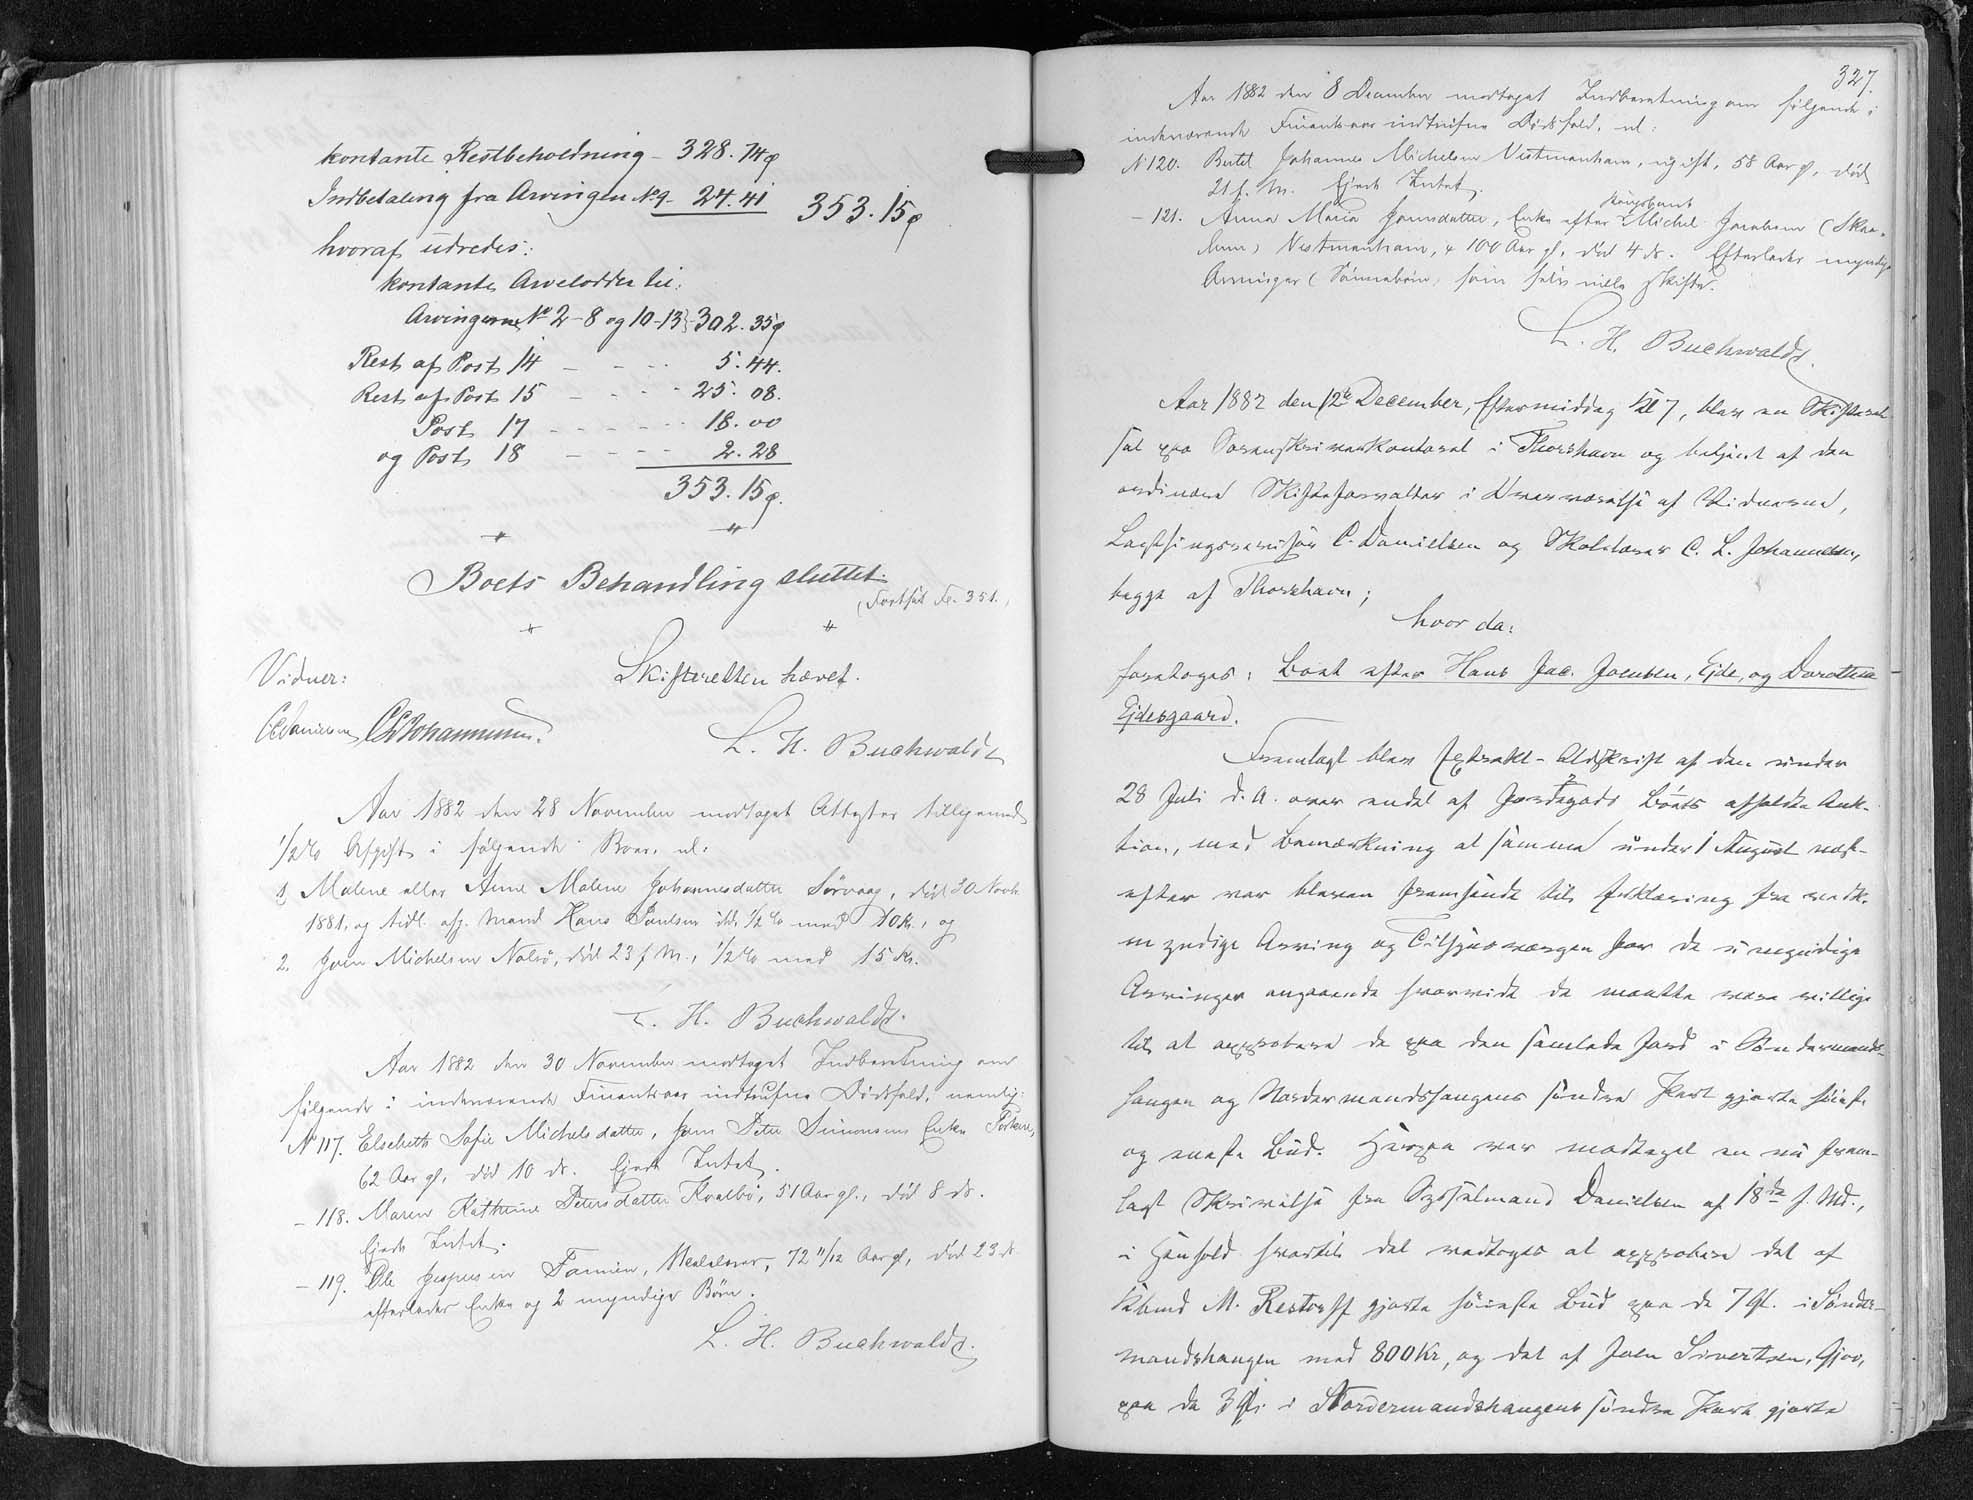 kontante Restbeholdning - 328. 74 ø
Indbetaling fra Arvingen No 9 - 24. 41 353. 15 ø
hvoraf udredes:
kontante Arvelodder til:
Arvingerne No 2-8 og 10-13 - 302. 35 ø
Rest af Post 14 - - - 5. 44.
Rest af Post 15 - - - 25. 08.
Post 17 - - - - - - 18. 00
og Post 18 - - - - 2. 28
353. 15 ø.
Boets Behandling sluttet.
(Fortsat Fol. 351.)
Skifteretten hævet.
Vidner:
C. Danielsen C L Johannesen.
L. H. Buchwaldt
Aar 1882 den 28 November modtaget Attester tilligemed
1/2 % Afgift i følgende Boer, nl:
1. Malene eller Anne Malene Johannesdatter Sørvaag, død 30 Novbr
1881, og tidl. afg. Mand Hans Poulsen 1/2 % med 10 Kr., og
2. Joen Michelsen Nolsø, død 23 f. M., 1/2 % med 15 Kr.
L. H. Buchwaldt.
Aar 1882 den 30 November modtaget Indberetning om
følgende i indeværende Finantsaar indtrufne Dødsfald, nemlig:
No 117. Elsebeth Sofie Michelsdatter, Peter Simonsens Enke
62 Aar gl., død 10 ds. Ejede Intet.
- 118. Maren Kathrine Petersdatter Kvalbø, 51 Aar gl., død 8 ds.
Ejede Intet.
- 119. Ole Jespersen Famien, 72 11/12 Aar gl., død 23 ds
efterlader Enke og 2 myndige Børn.
L. H. Buchwaldt.
327.
Aar 1882 den 8 December modtaget Indberetning om følgende i
indeværende Finantsaar indtrufne Dødsfald, nl:
No 120. Johannes Michelsen Vestmanhavn, ugift, 58 Aar gl., død
21 f. M. Ejede Intet.
- 121. Anna Maria Joensdatter, Enke efter Michel Jacobsen
Vestmanhavn, 100 Aar gl., død 4 ds. Efterlader myndige
Arvinger (Sønnebørn) som selv ville skifte.
L. H. Buchwaldt.
Aar 1882 den 12te December, Eftermiddag Kl 7, blev en Skifteret
sat paa Sorenskriverkontoret i Thorshavn og betjent af den
ordinære Skifteforvalter i Overværelse af Vidnerne,
Lagthingsrevisor C. Danielsen og Skolelærer C. L. Johannesen,
begge af Thorshavn;
hvor da:
foretoges: Boet efter Hans Jac. Joensen, Ejde, og Dorothea
Ejdesgaard.
Fremlagt blev Extrakt-Udskrift af den under
28 Juli d. A. over endel af Boets Jordegods afholdte Auk-
tion, med Bemærkning at samme under 1 August næst-
efter var bleven fremsendt til Erklæring fra vedk.
myndige Arving og Tilsynsværgen for de umyndige
Arvinger angaaende hvorvidt de maatte være villige
til at approbere de paa den samlede Jord i Søndermands-
haugen og Nordermandshaugens søndre Part gjorte høieste
og eneste Bud. Herpaa var modtaget en nu frem-
lagt Skrivelse fra Sysselmand Danielsen af 18de f. Md.,
i Henhold hvortil det vedtoges at approbere det af
Købmd M. Restorff gjorte høieste Bud paa de 7 Gl. i Sønder-
mandshaugen med 800 Kr, og det af Joen Sivertsen, Gjov,
paa de 3 Gl. i Nordermandshaugens søndre Part gjorte